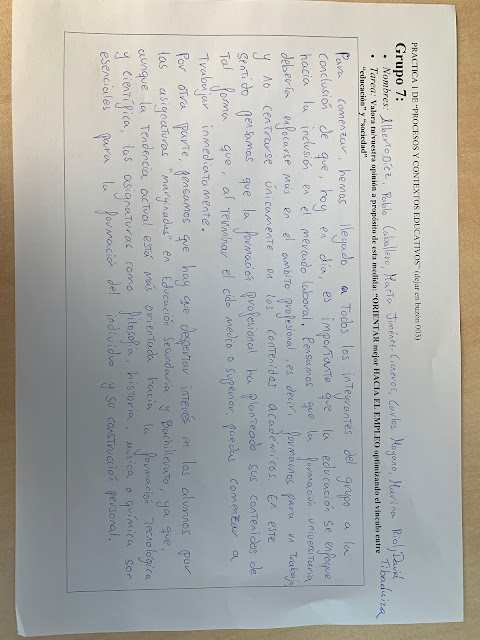 PRACTICA 1 DE "PROCESOS Y CONTEXTOS EDUCATIVOS" (dejar en buzon 003)
Grupo 7:
• Nombres: Alberto Díez, Pablo Caballero, Marta Jiménez Cisneros, Carlos Moyano, Marino Riol, David Tibaduiza
• Tarea: Valora tu/vuestra opinión a propósito de esta medida: "ORIENTAR mejor HACIA EL EMPLEO optimizando el vínculo entre
"educación" y "sociedad"
Para comenzar, hemos llegado a todos los integrantes del grupo a la
conclusión de que, hoy en día, es importante que la educación se enfoque
hacia la inclusión en el mercado laboral. Pensamos que la formación universitaria
debería enfocarse más en el ambito profesional, es decir, formarnos para un trabajo
y no centrarse únicamente en los contenidos académicos. En este
sentido pensamos que la formación profesional ha planteado sus contenidos de
tal forma que, al terminar el ciclo medio o superior, puedas comenzar a
trabajar inmediatamente.
Por otra parte, pensamos que hay que despertar interés en los alumnos por
las asignaturas "marginadas" en Educación Secundaria y Bachillerato, ya que,
aunque la tendencia actual está más orientada hacia la formación tecnológica
y científica, las asignaturas como filosofía, historia, música o química son
esenciales para la formación del individuo y su construcción personal.